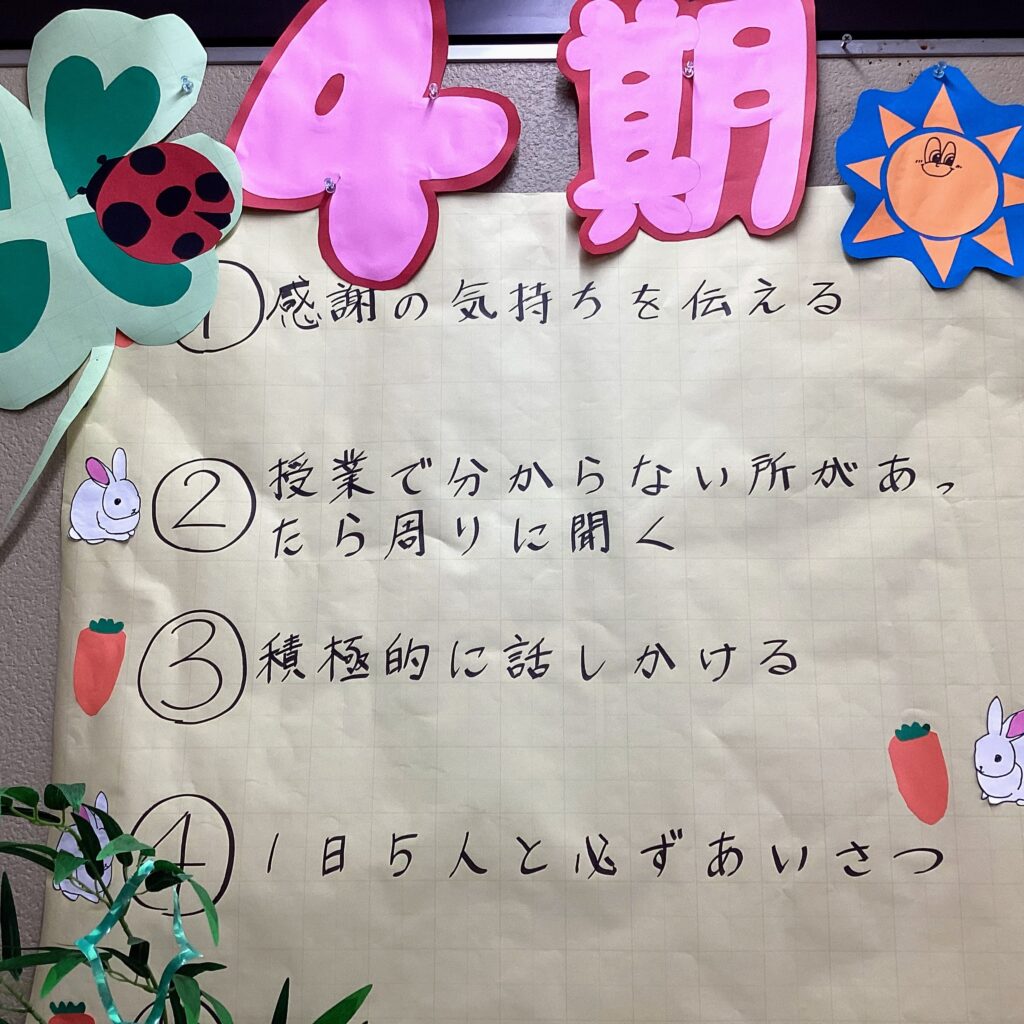 4期
①感謝の気持ちを伝える
②授業で分からない所があっ
たら周りに聞く
③積極的に話しかける
④1日5人と必ずあいさつ